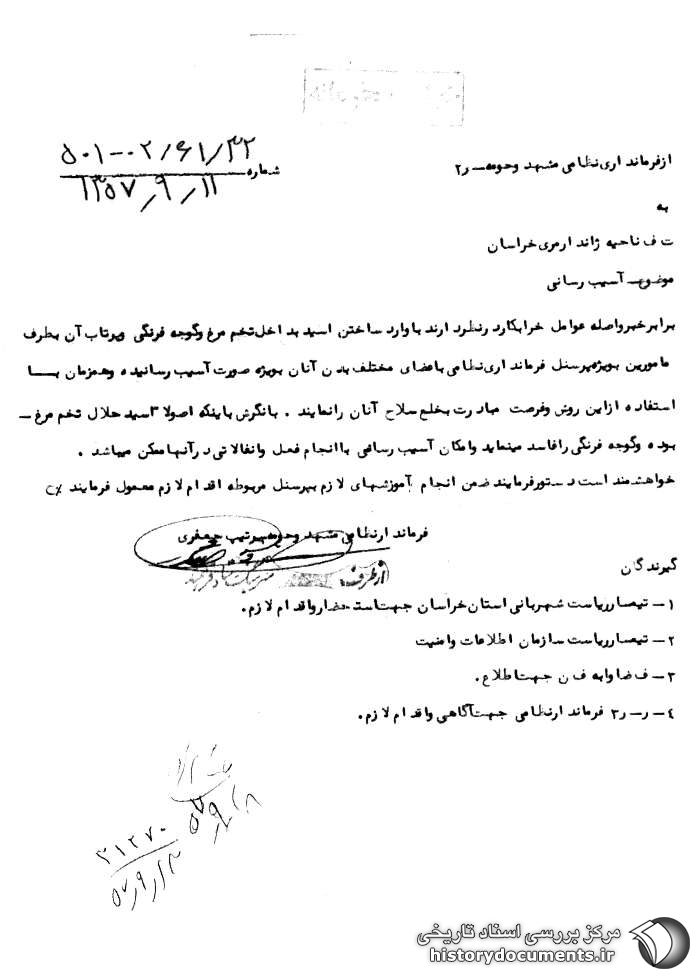 از فرمانداری نظامی مشهد و حومه - ر۲
شماره ۵۰۱-۰۲/۶۱/۳۲
۱۳۵۷/۹/۱۱
به
ت ف ناحیه ژاندارمری خراسان
موضوع - آسیب رسانی
برابر خبر واصله عوامل خرابکار در نظر دارند با وارد ساختن اسید بداخل تخم مرغ وگوجه فرنگی و پرتاب آن بطرف
مامورین بویژه پرسنل فرمانداری نظامی باعضای مختلف بدن آنان بویژه صورت آسیب رسانیده و همزمان بـــا
استفاده از این روش و فرصت مبادرت بخلع سلاح آنان را نمایند . با نگرش باینکه اصولا اسید حلال تخم مرغ -
بوده وگوجه فرنگی را فاسد مینماید و امکان آسیب رسانی با انجام فعل و انفعالاتی در آنها ممکن میباشد .
خواهشمند است دستور فرمایند ضمن انجام آموزشهای لازم بپرسنل مربوطه اقدام لازم معمول فرمایند
فرماندار نظامی مشهد و حومه سرتیپ جعفری
از طرف
گیرندگان
۱- تیمسار ریاست شهربانی استان خراسان جهت استحضار و اقدام لازم.
۲- تیمسار ریاست سازمان اطلاعات و امنیت
۳- ف ضا وابه ف ن جهت اطلاع.
۴- ر- ر۳ فرماندار نظامی جهت آگاهی و اقدام لازم.
۵۷/۹/۱۸
۲۱۲۷۰
۵۷/۹/۱۳
مرکز بررسی اسناد تاریخی
historydocuments.ir